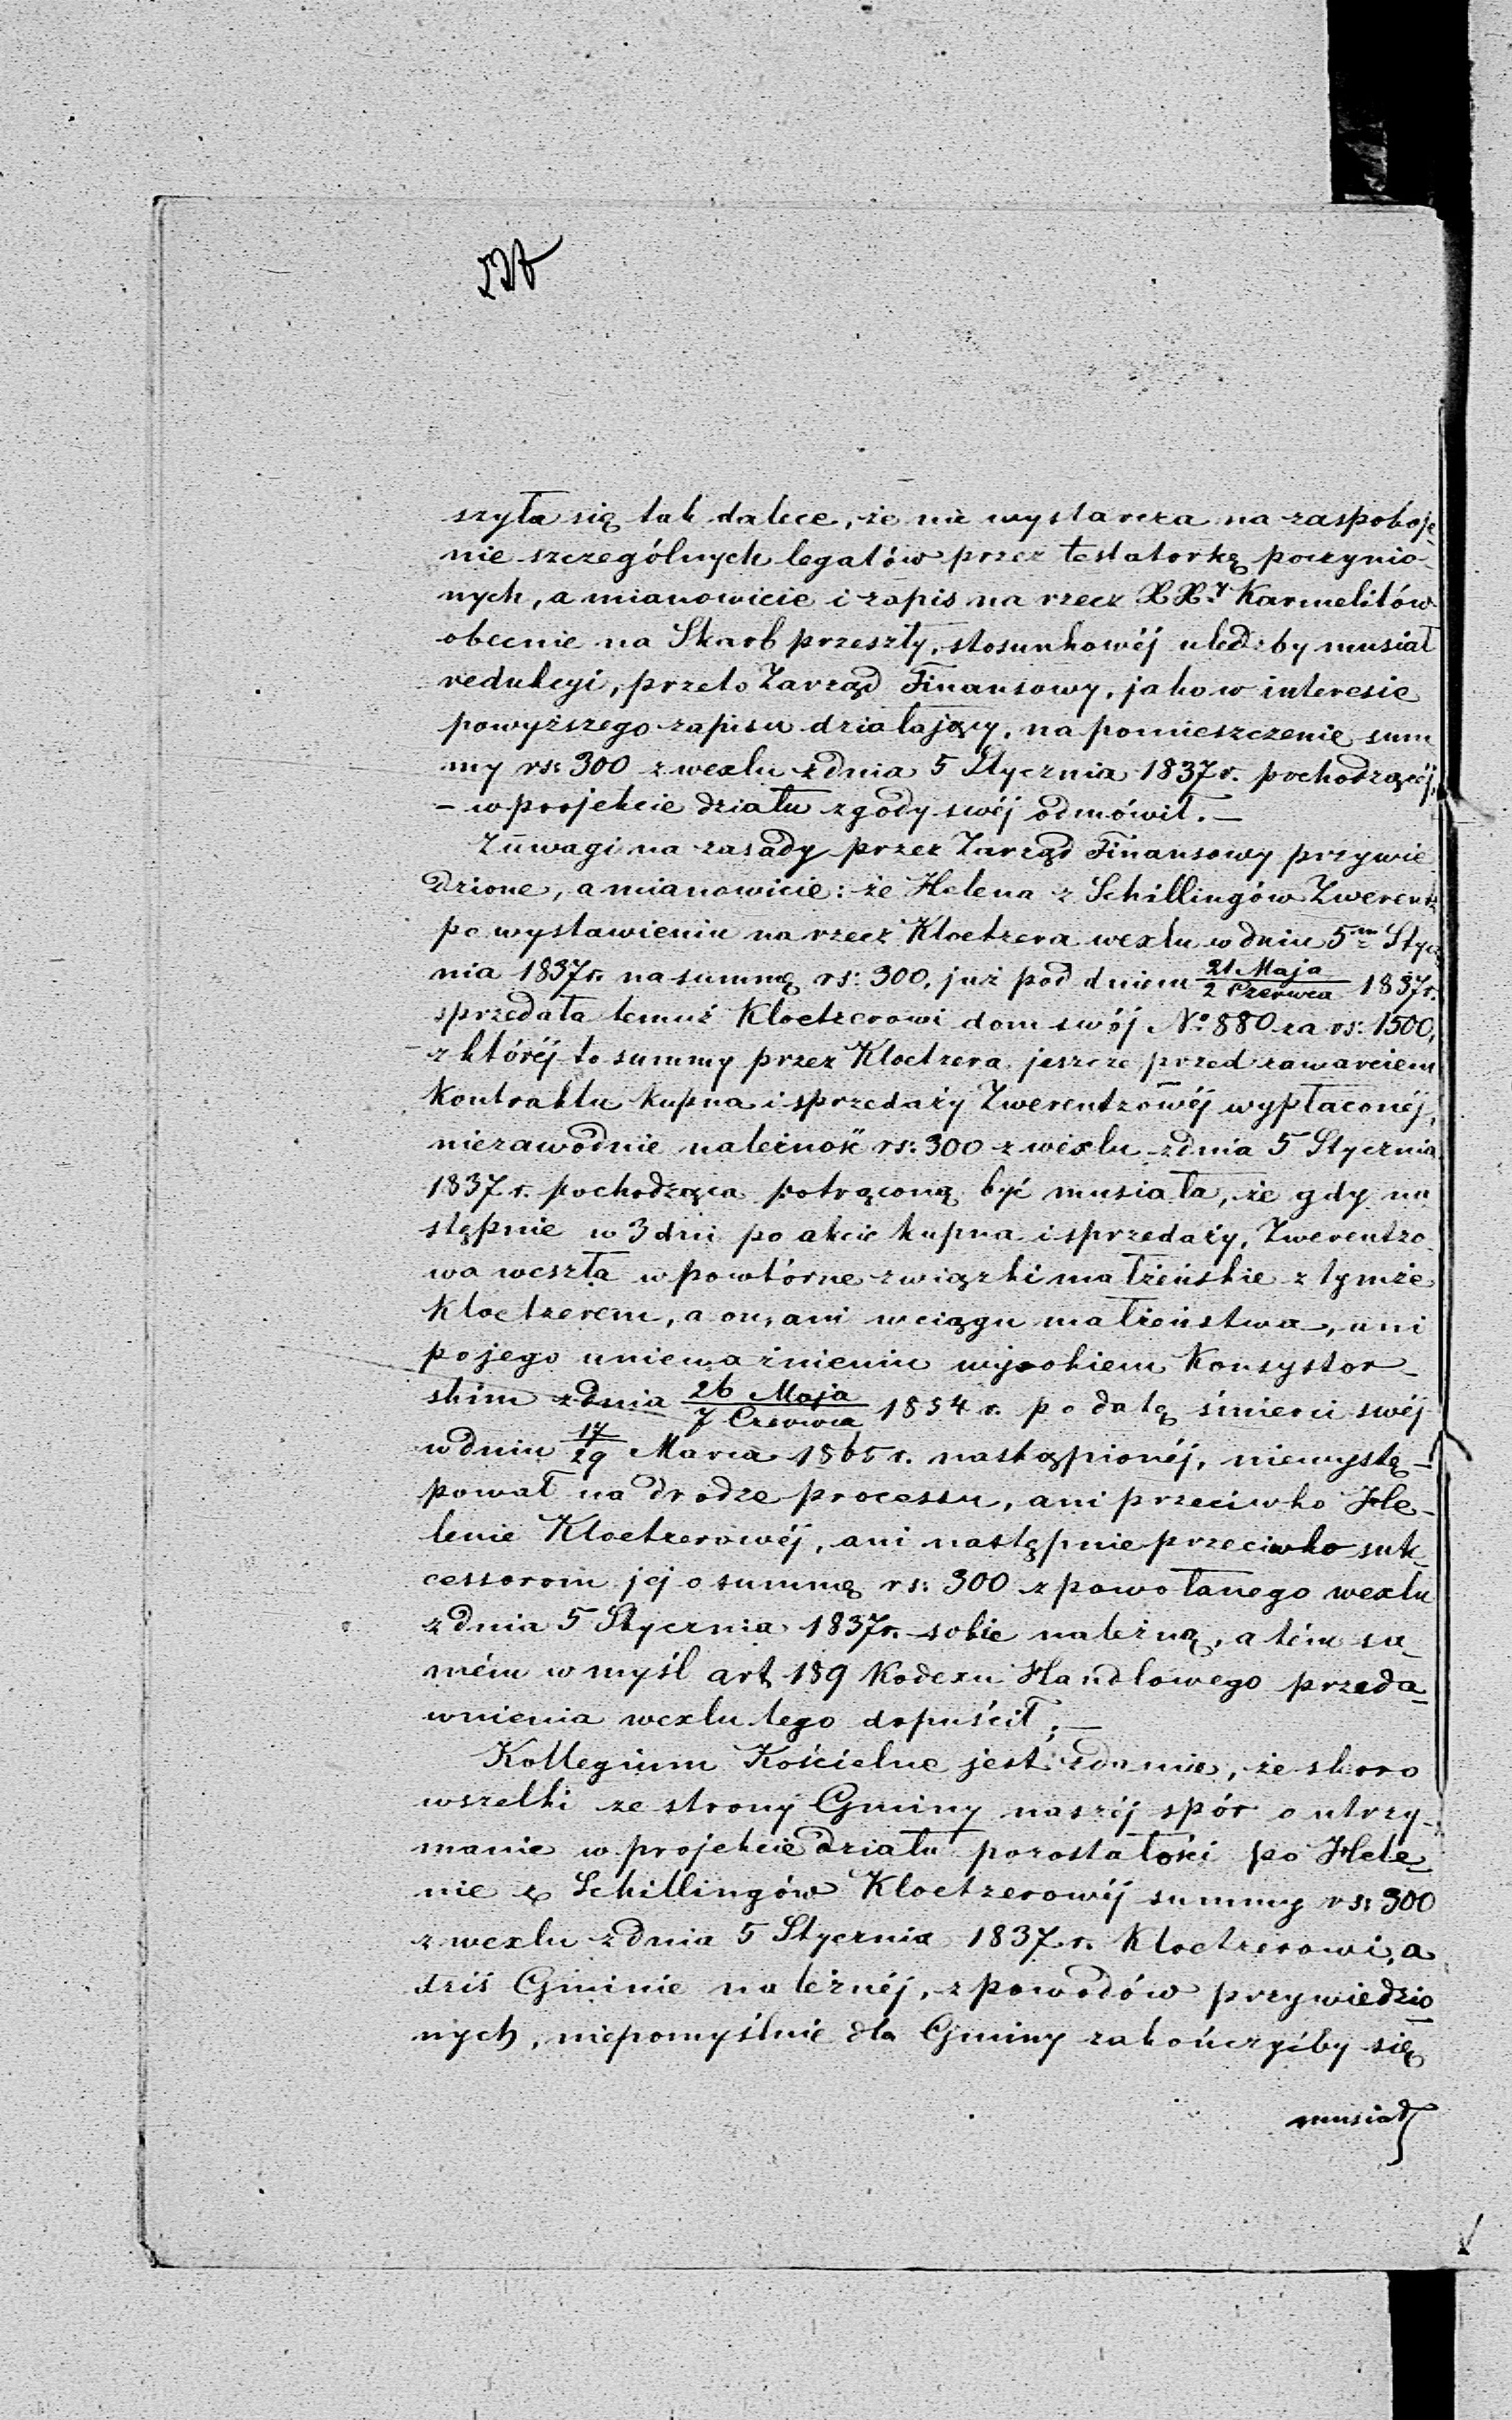 szyła się tak dalece, że nie wystarcza na zaspokoje
nie szczególnych legatów przez testatorkę poczynio-
nych, a mianowicie i zapis na rzecz XX.y Karmelitów
obecnie na Skarb przeszły, stosunkowéj uledz by musiał
redukcyi, przeto Zarząd Finansowy, jako w interesie
powyższego zapisu działający, na pomieszczenie sum
my rs: 300 z wexlu z dnia 5 Stycznia 1837 r. pochodzącéj,
- w projekcie działu zgody swéj odmówił. -
Z uwagi na zasady przez Zarząd Finansowy przywie
dzione, a mianowicie: że Helena z Schillingów Zwerentz
po wystawieniu na rzecz Kloetzera wexlu w dniu 5m Stycz
nia 1837 r. na summę rs: 300, już pod dniem 21 Maja / 2 Czerwca 1837 r.
sprzedała temuż Kloetzerowi dom swój No 880 za rs: 1500,
- z któréj to summy przez Kloetzera jeszcze przed zawarciem
Kontraktu kupna i sprzedaży Zwerentzowéj wypłaconéj,
niezawodnie należność rs: 300 z wexlu z dnia 5 Stycznia
1837 r. pochodząca potrąconą być musiała, że gdy na
stępnie w 3 dni po akcie kupna i sprzedaży, Zwerentzo
wa weszła w powtórne związki małżeńskie z tymże
Kloetzerem, a on, ani w ciągu małżeństwa, ani
po jego unieważnieniu wyrokiem Konsystor-
skim z dnia 26 Maja / 7 Czerwca 1854 r. po datę śmierci swéj
w dniu 17/29 Marca 1865 r. nastąpionéj, niewystę-
pował na drodze processu, ani przeciwko He-
lenie Kloetzerowéj, ani następnie przeciwko suk-
cessorom jej o summę rs: 300 z powołanego wexlu
z dnia 5 Stycznia 1837 r. sobie należną, a tém sa-
mém w myśl art 189 Kodexu Handlowego przeda-
wnienia wexlu tego dopuścił; -
Kollegium Kościelne jest zdania, że skoro
wszelki ze strony Gminy naszéj spór o utrzy-
manie w projekcie działu pozostałości po Hele-
nie z Schillingów Kloetzerowéj summy rs: 300
z wexlu z dnia 5 Stycznia 1837 r. Kloetzerowi, a
dziś Gminie należnéj, z powodów przywiedzio
nych, niepomyślnie dla Gminy zakończyćby się
musiał